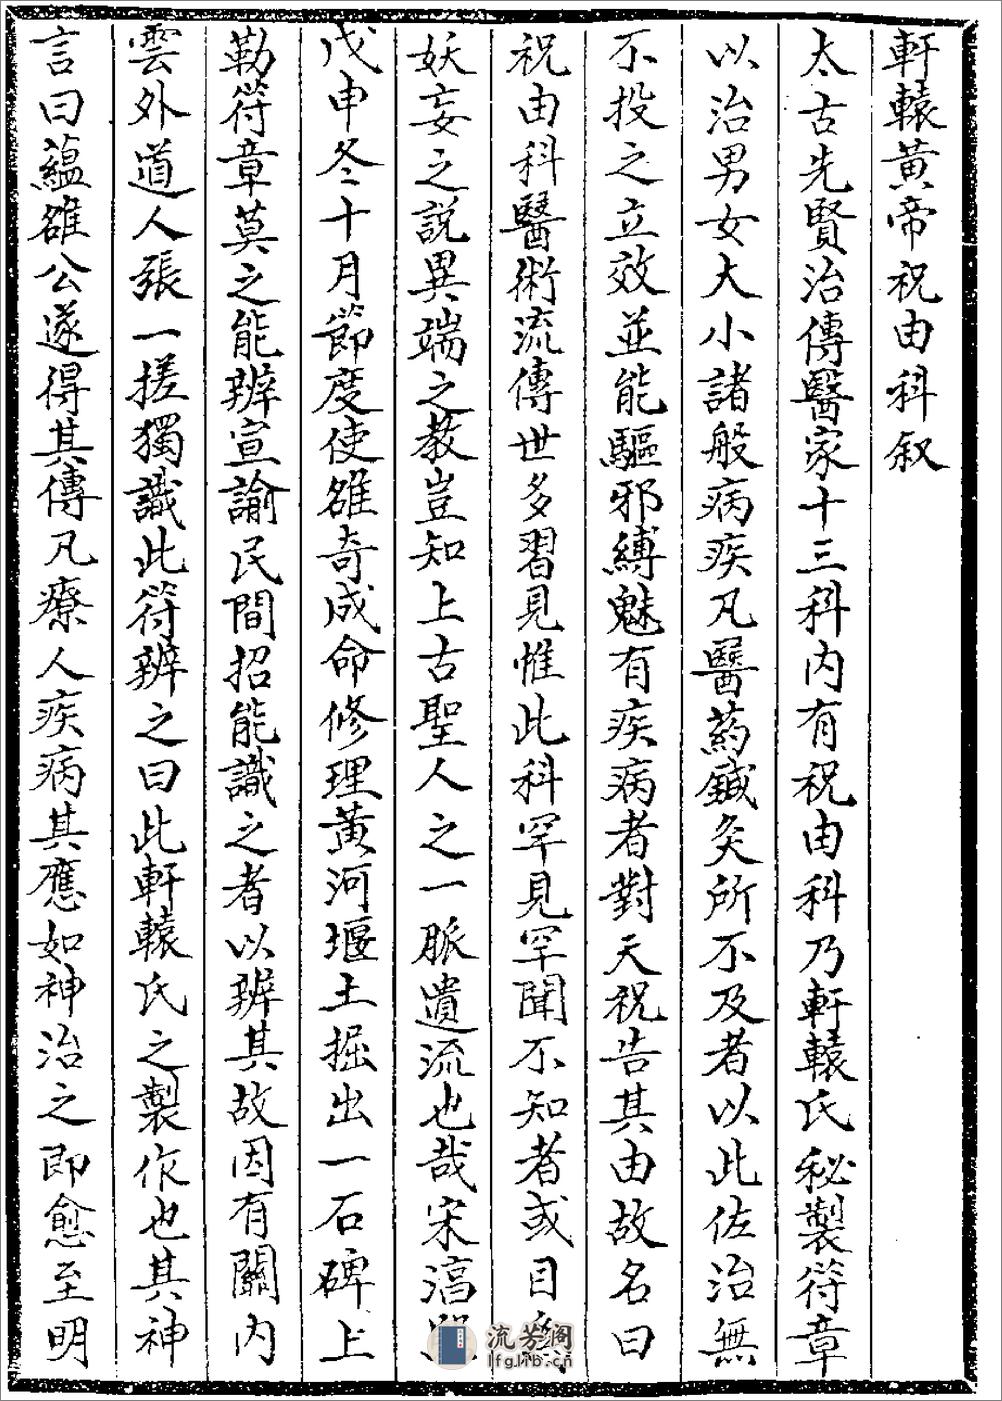 軒轅黄帝祝由科叙
太古先賢治傳醫家十三科内有祝由科乃軒轅氏秘製符章
以治男女大小諸般病疾凡醫葯鍼灸所不及者以此佐治無
不投之立效並能驅邪縛魅有疾病者對天祝告其由故名曰
祝由科醫術流傳世多習見惟此科罕見罕聞不知者或目為
妖妄之説異端之教豈知上古聖人之一脈遺流也哉宋淳熙
戊申冬十月節度使雒奇成命修理黄河堰土掘出一石碑上
勒符章莫之能辨宣諭民間招能識之者以辨其故因有關内
雲外道人張一搓獨識此符辨之曰此軒轅氏之製作也其神
言曰蘊雒公遂得其傳凡療人疾病其應如神治之即愈至明
流芳閣
lfglib.cn